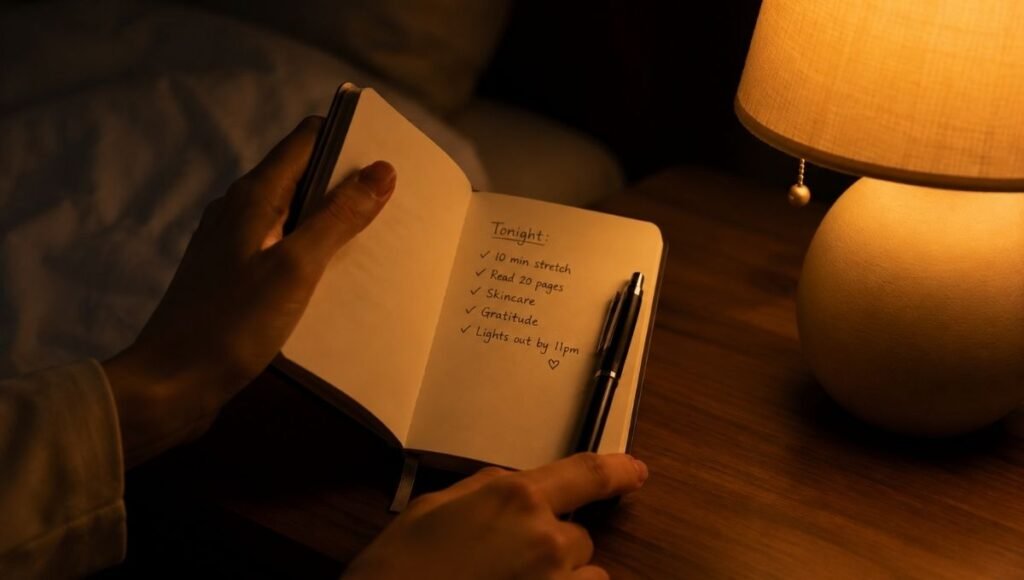 Tonight:
✓ 10 min stretch
✓ Read 20 pages
✓ Skincare
✓ Gratitude
✓ Lights out by 11pm
♡